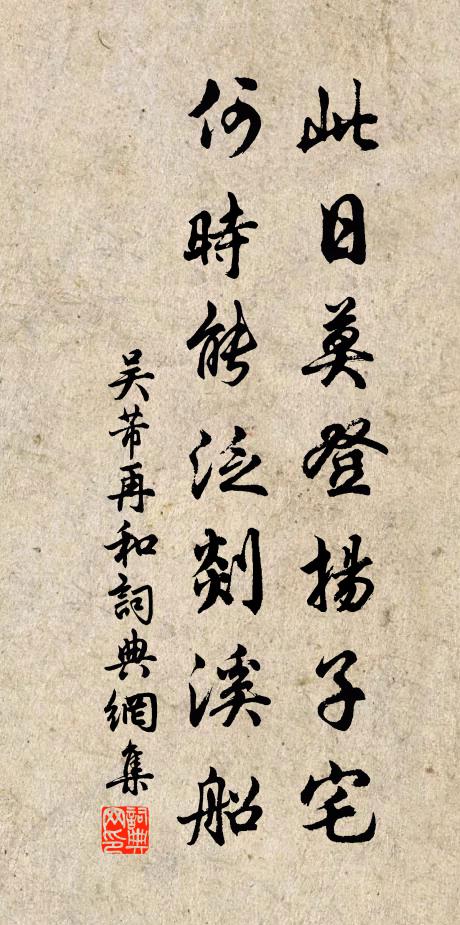 此日莫登揚子宅
何時能泛剡溪船
吴芾再和詞典網集
詞典網印